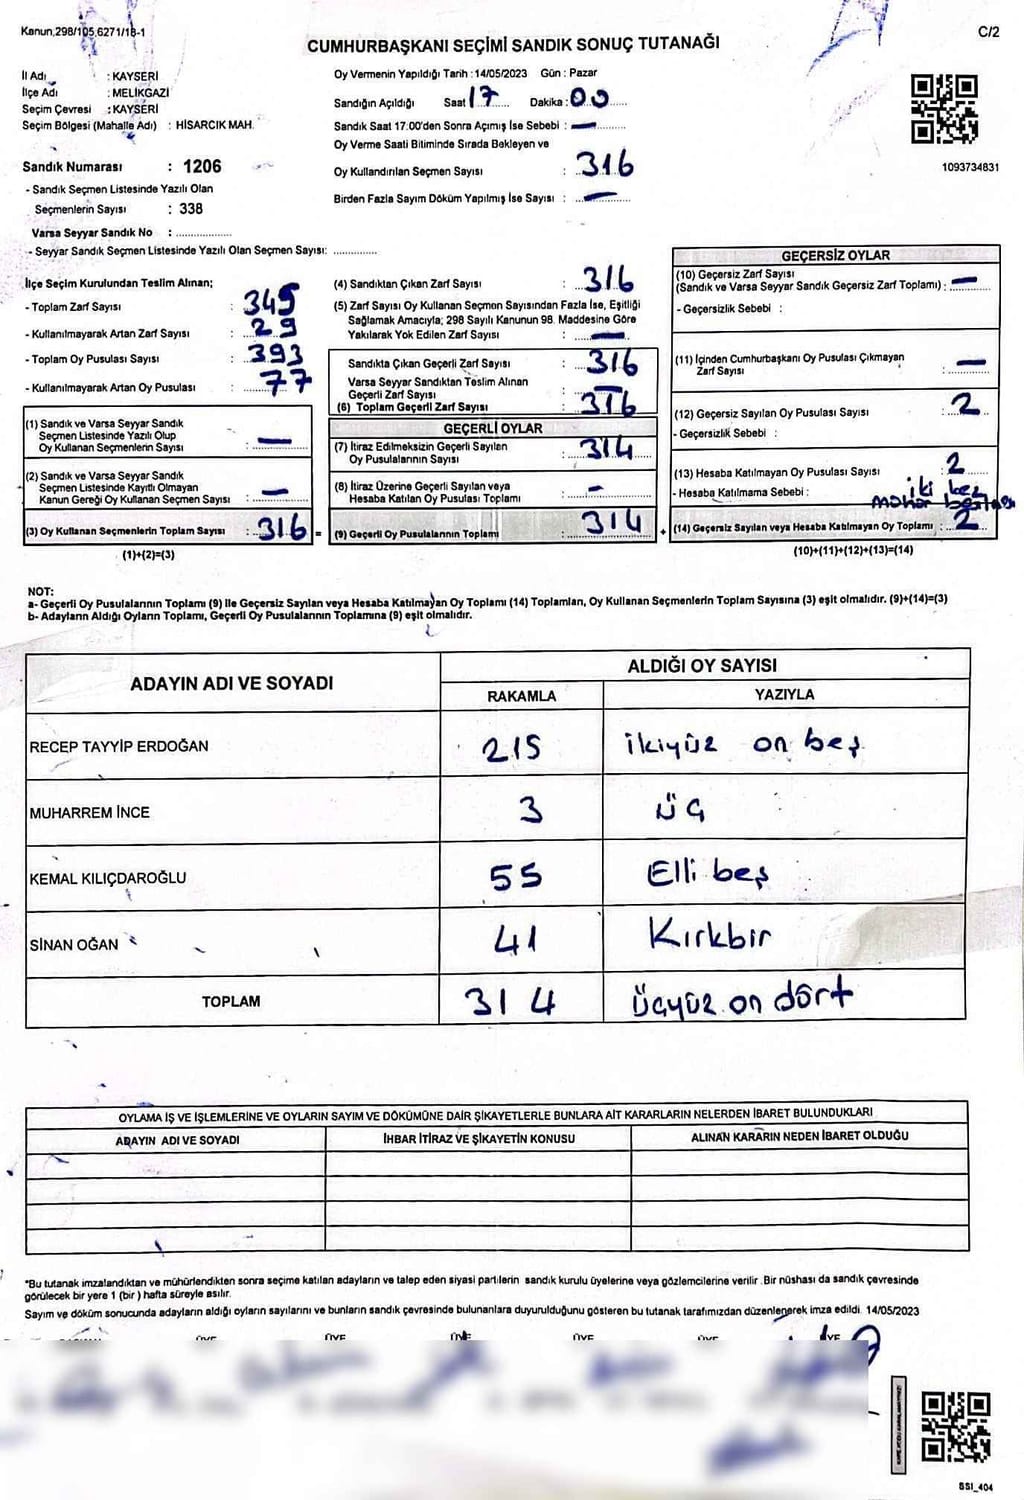 Kanun,298/105,6271/18-1
C/2
CUMHURBAŞKANI SEÇİMİ SANDIK SONUÇ TUTANAĞI
İl Adı : KAYSERİ
İlçe Adı : MELİKGAZİ
Seçim Çevresi : KAYSERİ
Seçim Bölgesi (Mahalle Adı) : HİSARCIK MAH.
Sandık Numarası : 1206
- Sandık Seçmen Listesinde Yazılı Olan
Seçmenlerin Sayısı : 338
Varsa Seyyar Sandık No :
- Seyyar Sandık Seçmen Listesinde Yazılı Olan Seçmen Sayısı:
Oy Vermenin Yapıldığı Tarih : 14/05/2023 Gün : Pazar
Sandığın Açıldığı Saat 17 Dakika : 00
Sandık Saat 17.00'den Sonra Açımış İse Sebebi : —
Oy Verme Saati Bitiminde Sırada Bekleyen ve
Oy Kullandırılan Seçmen Sayısı : 316
Birden Fazla Sayım Döküm Yapılmış İse Sayısı : —
1093734831
İlçe Seçim Kurulundan Teslim Alınan;
- Toplam Zarf Sayısı : 345
- Kullanılmayarak Artan Zarf Sayısı : 29
- Toplam Oy Pusulası Sayısı : 393
- Kullanılmayarak Artan Oy Pusulası : 77
(1) Sandık ve Varsa Seyyar Sandık
Seçmen Listesinde Yazılı Olup
Oy Kullanan Seçmenlerin Sayısı : —
(2) Sandık ve Varsa Seyyar Sandık
Seçmen Listesinde Kayıtlı Olmayan
Kanun Gereği Oy Kullanan Seçmen Sayısı : —
(3) Oy Kullanan Seçmenlerin Toplam Sayısı : 316 =
(1)+(2)=(3)
(4) Sandıktan Çıkan Zarf Sayısı : 316
(5) Zarf Sayısı Oy Kullanan Seçmen Sayısından Fazla İse, Eşitliği
Sağlamak Amacıyla; 298 Sayılı Kanunun 98. Maddesine Göre
Yakılarak Yok Edilen Zarf Sayısı : —
Sandıkta Çıkan Geçerli Zarf Sayısı : 316
Varsa Seyyar Sandıktan Teslim Alınan
Geçerli Zarf Sayısı : —
(6) Toplam Geçerli Zarf Sayısı : 316
GEÇERLİ OYLAR
(7) İtiraz Edilmeksizin Geçerli Sayılan
Oy Pusulalarının Sayısı : 314
(8) İtiraz Üzerine Geçerli Sayılan veya
Hesaba Katılan Oy Pusulası Toplamı : -
(9) Geçerli Oy Pusulalarının Toplamı : 314 +
GEÇERSİZ OYLAR
(10) Geçersiz Zarf Sayısı
(Sandık ve Varsa Seyyar Sandık Geçersiz Zarf Toplamı) : —
- Geçersizlik Sebebi :
(11) İçinden Cumhurbaşkanı Oy Pusulası Çıkmayan
Zarf Sayısı : —
(12) Geçersiz Sayılan Oy Pusulası Sayısı : 2
- Geçersizlik Sebebi :
(13) Hesaba Katılmayan Oy Pusulası Sayısı : 2
- Hesaba Katılmama Sebebi : iki kez
mühür
(14) Geçersiz Sayılan veya Hesaba Katılmayan Oy Toplamı : 2
(10)+(11)+(12)+(13)=(14)
NOT:
a- Geçerli Oy Pusulalarının Toplamı (9) ile Geçersiz Sayılan veya Hesaba Katılmayan Oy Toplamı (14) Toplamları, Oy Kullanan Seçmenlerin Toplam Sayısına (3) eşit olmalıdır. (9)+(14)=(3)
b- Adayların Aldığı Oyların Toplamı, Geçerli Oy Pusulalarının Toplamına (9) eşit olmalıdır.
ADAYIN ADI VE SOYADI
ALDIĞI OY SAYISI
RAKAMLA YAZIYLA
RECEP TAYYİP ERDOĞAN 215 ikiyüz on beş
MUHARREM İNCE 3 üç
KEMAL KILIÇDAROĞLU 55 Elli beş
SİNAN OĞAN 41 Kırkbir
TOPLAM 314 üçyüz on dört
OYLAMA İŞ VE İŞLEMLERİNE VE OYLARIN SAYIM VE DÖKÜMÜNE DAİR ŞİKAYETLERLE BUNLARA AİT KARARLARIN NELERDEN İBARET BULUNDUKLARI
ADAYIN ADI VE SOYADI İHBAR İTİRAZ VE ŞİKAYETİN KONUSU ALINAN KARARIN NEDEN İBARET OLDUĞU
*Bu tutanak imzalandıktan ve mühürlendikten sonra seçime katılan adayların ve talep eden siyasi partilerin sandık kurulu üyelerine veya gözlemcilerine verilir. Bir nüshası da sandık çevresinde
görülecek bir yere 1 (bir) hafta süreyle asılır.
Sayım ve döküm sonucunda adayların aldığı oyların sayılarını ve bunların sandık çevresinde bulunanlara duyurulduğunu gösteren bu tutanak tarafımızdan düzenlenerek imza edildi. 14/05/2023
ÜYE ÜYE ÜYE ÜYE ÜYE ÜYE
SSI_404